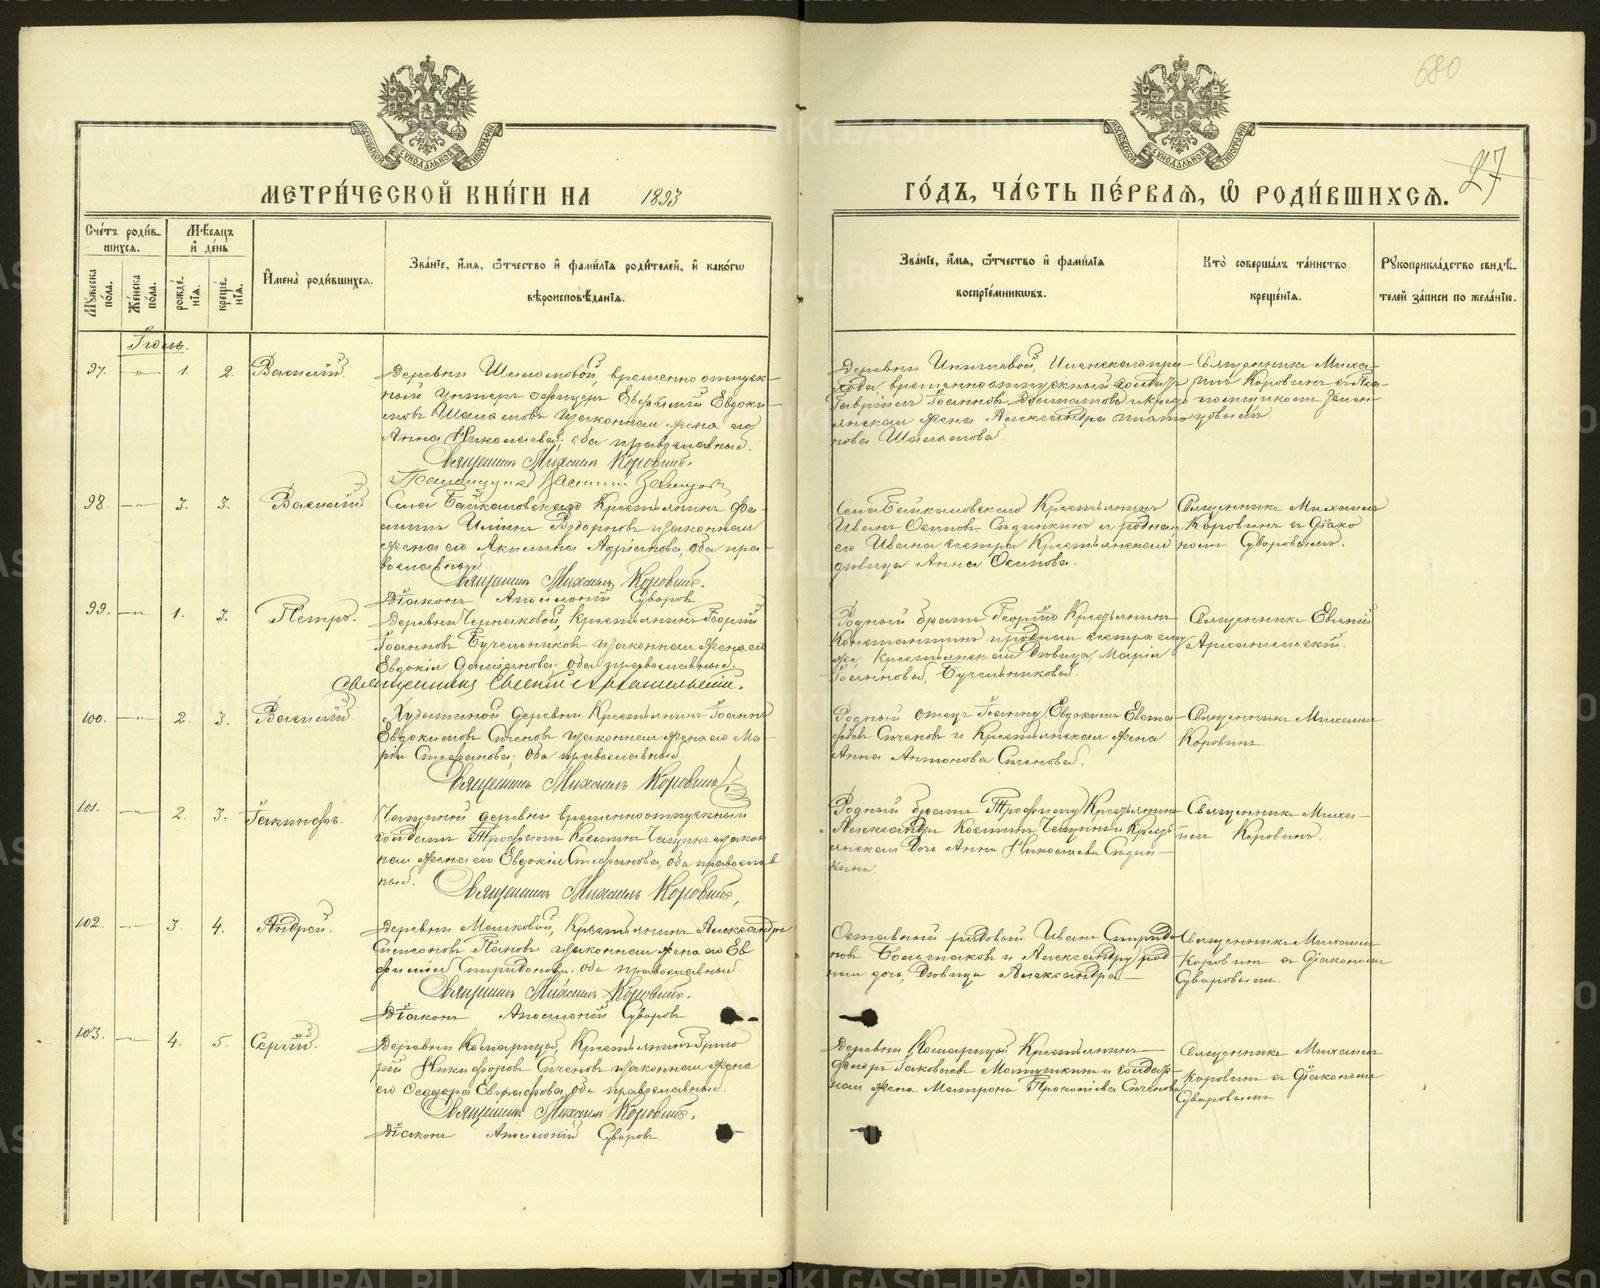 680
27
МЕТРИ́ЧЕСКОЙ КНИ́ГИ НА 1893
ГО́ДЪ, ЧА́СТЬ ПЕ́РВАЯ, Ѡ РОДИ́ВШИХСЯ.
МОСКОВСКОЙ СѴНОДАЛЬНОЙ ТИПОГРАФІИ
МОСКОВСКОЙ СѴНОДАЛЬНОЙ ТИПОГРАФІИ
Сче́тъ роди́в-
шихся.
Му́жеска
пола.
Же́нска
пола.
Мѣ́сяцъ
и҆ де́нь
рожде́-
нїя.
креще́-
нїя.
И҆мена̀ роди́вшихся.
Зва́нїе, и҆́мя, ѻ҆́тчество и҆ фами́лїя роди́телей, и҆ како́гѡ
вѣроисповѣ́данїя.
Зва́нїе, и҆́мя, ѻ҆́тчество и҆ фами́лїя
воспрїе́мникѡвъ.
Кто̀ соверша́лъ та́инство
креще́нїя.
Рꙋкоприкла́дство свидѣ́-
телей за́писи по жела́нїю.
Іюль.
97. -„- 1. 2. Василій.
Деревни Шаламовой, временно отпуск-
ный унтеръ офицеръ Евфимій Евдоки-
мовъ Шаламовъ и законная жена его
Анна Николаева, оба православные.
Священникъ Михаилъ Коровинъ.
Псаломщикъ Василій
Деревни
хода, временно отпускный солдатъ
Гавріилъ Іоанновъ и кресть-
янская жена Александра
нова Шаламова
Священникъ Миха-
илъ Коровинъ съ Пса-
ломщикомъ
98. -„- 3. 3. Василій
Села Байкаловскаго Крестьянинъ Фи-
липпъ Ильинъ и законная
жена его Акилина Адріанова, оба пра-
вославные.
Священникъ Михаилъ Коровинъ.
Діаконъ Аполлоній Суворовъ
Села Байкаловскаго Крестьянинъ
Иванъ Осиповъ Сединкинъ и родная
его Ивана сестра Крестьянская
дѣвица Анна Осипова.
Священникъ Михаилъ
Коровинъ съ Діако
номъ Суворовымъ.
99. -„- 1. 3. Петръ.
Деревни Чернаковой, Крестьянинъ Георгій
Іоанновъ Бучельниковъ и законная жена его
Евдокія оба православные.
Священникъ Евгеній Архангельскій.
Родный братъ Георгію Крестьянинъ
Константинъ и родная сестра ему
же, Крестьянская Дѣвица, Марія
Іоанновы, Бучельниковы.
Священникъ Евгеній
Архангельскій.
100. -„- 2. 3. Василій.
Худышиной деревни Крестьянинъ Іоаннъ
Евдокимовъ Сиченовъ и законная жена его Ма-
рія Стефанова, оба православные.
Священникъ Михаилъ Коровинъ
Родный отецъ Іоанну, Евдокимъ Евста-
фіевъ Сиченовъ и Крестьянская жена
Анна Антонова Сиченова.
Священникъ Михаилъ
Коровинъ
101. -„- 2. 3. Іакинфъ.
Чащиной деревни временноотпускный
солдатъ Трофимъ Косминъ Чащинъ и закон-
ная жена его Евдокія Стефанова, оба православ
ные. Священникъ Михаилъ Коровинъ,
Родный братъ Трофиму, Крестьянинъ
Александръ Косминъ Чащинъ и Кресть-
янская дочь Анна Николаева Седин-
кина.
Священникъ Миха-
илъ Коровинъ.
102. -„- 3. 4. Андрей.
Деревни Мелиховой, Крестьянинъ Александръ
Пановъ и законная жена его Ев
фимія Спиридонова, оба православные.
Священникъ Михаилъ Коровинъ.
Діаконъ Аполлоній Суворовъ
Отставной рядовой Иванъ Спиридо
новъ и Александру род
ная дочь, Дѣвица Александра
Священникъ Михаилъ
Коровинъ съ Діакономъ
Суворовымъ.
103. -„- 4. 5. Сергій.
Деревни Комарицы, Крестьянинъ Григо
рій Никифоровъ Сиченовъ и законная жена
его Ѳеодора Евграфова, оба православные.
Священникъ Михаилъ Коровинъ.
Діаконъ Аполлоній Суворовъ.
Деревни Комарицы Крестьянинъ
Ѳеодоръ Іаковлевъ Матушкинъ и солдат-
ская жена Матрона Прокопіева Сиченова
Священникъ Михаилъ
Коровинъ съ Діакономъ
Суворовымъ.
METRIKI.GASO-URAL.RU